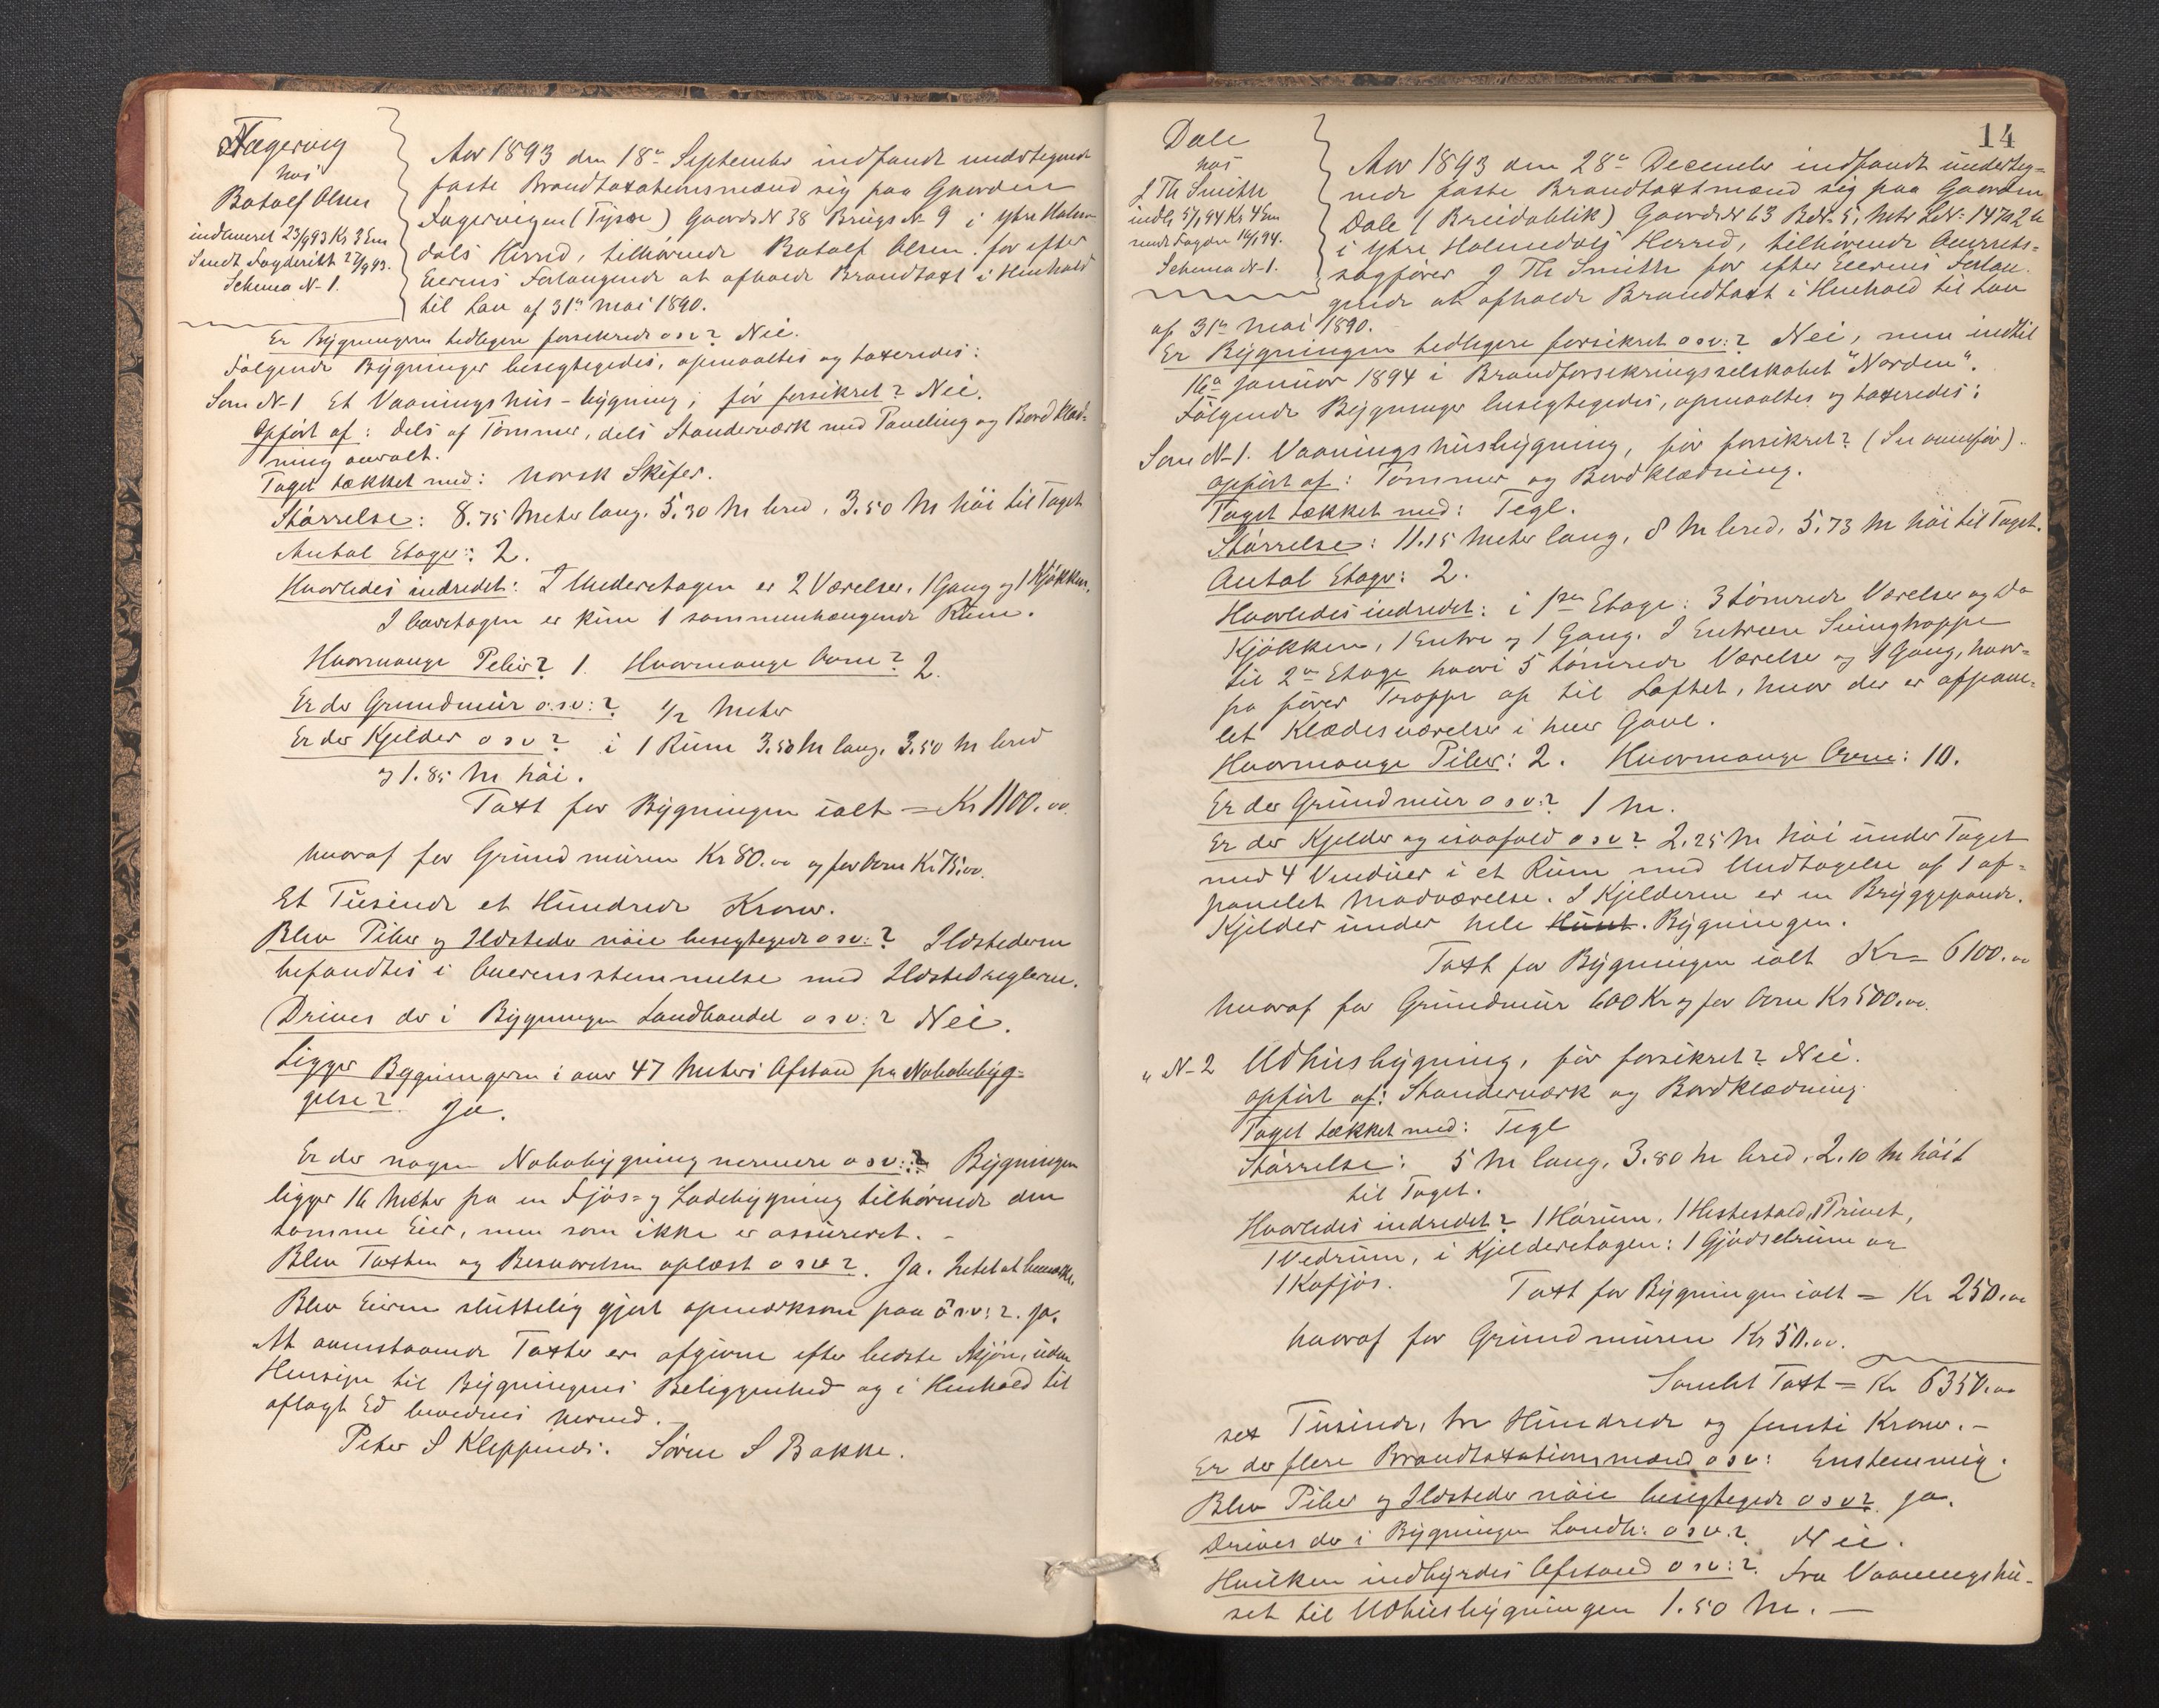 Fagervig
hos
Batalf Olsen
indleveret 23/9 93 Kr 3 Em
Sendt Fogderiet 27/9 93.
Schema N-1.
Aar 1893 den 18de September indfandt undertegnede
faste Brandtaxationsmænd sig paa Gaarden
Fagervigen (Tysse) Gaards N 38 Brugs N 9 i Ytre Holme-
dals Herred, tilhørende Batalf Olsen for efter
Eierens Forlangende at afholde Brandtaxt i Henhold
til Lov af 31te Mai 1890.
Er Bygningerne tidligere forsikrede osv? Nei.
Følgende Bygninger besigtegedes, opmaaltes og taxeredes:
Som N-1 Et Vaaningshus-bygning; før forsikret? Nei.
Opført af: dels af Tømmer, dels Standerværk med Paneling og Bordklæd-
ning overalt.
Taget tækket med: Norsk Skifer.
Størrelse: 8.75 Meter lang, 5.30 M bred, 3.50 M høi til Taget
Antal Etager: 2.
Hvorledes indredet: I Underetagen er 2 Værelser, 1 Gang og 1 Kjøkken.
I Overetagen er kun 1 sammenhængende Rum.
Hvormange Piber? 1. Hvormange Ovne? 2.
Er der Grundmur o.s.v:? 1/2 Meter
Er der Kjelder osv? i 1 Rum 3.50 M lang, 3.50 M bred
og 1.85 M høi.
Taxt for Bygningen ialt = Kr 1100.00
hvoraf for Grundmuren Kr 80.00 og for Ovne Kr 75.00.
Et Tusinde et Hundrede Kroner.
Blev Piber og Ildsteder nøie besigtegede osv:? Ildstederne
befandtes i Overensstemmelse med Ildstedreglerne.
Drives der i Bygningen Landhandel osv:? Nei.
Ligger Bygningerne i over 47 Meters Afstand fra Nabobebyg-
gelse? Ja.
Er der nogen Nabobygning nærmere osv:? Bygningen
ligger 16 Meter fra en Fjøs- og Ladebygning tilhørende den
samme Eier, men som ikke er assureret. -
Blev Taxten og Besvarelsen oplæst osv? Ja. Intet at bemærke.
Blev Eieren sluttelig gjort opmærksom paa osv:?. Ja.
At ovenstaaende Taxter ere afgivne efter bedste Skjøn, uden
Hensyn til Bygningens Beliggenhed og i Henhold til
aflagt Ed bevidnes herved.
Peter S Kleppenes. Søren S Bakke.
14
Dale
hos
J Th Smith
indl. 5/1 94 Kr 4 Em
sendt Fogden 16/1 94.
Schema N-1.
Aar 1893 den 28de December indfandt underteg-
nede faste Brandtaxtmænd sig paa Gaarden
Dale (Breidablik) Gaards N 63 B.N. 5, Mtr L.N: 147a2b
i Ytre Holmedals Herred, tilhørende Overrets-
sagfører J Th Smith for efter Eierens Forlan-
gende at afholde Brandtaxt i Henhold til Lov
af 31te Mai 1890.
Er Bygningen tidligere forsikret osv:? Nei, men indtil
16de Januar 1894 i Brandforsikringsselskabet "Norden".
Følgende Bygninger besigtegedes, opmaaltes og taxeredes:
Som N-1. Vaaningshusbygning, før forsikret? (Se ovenfor).
opført af: Tømmer og Bordklædning.
Taget tækket med: Tegl.
Størrelse: 11.15 Meter lang, 8 M bred, 5.73 M høi til Taget.
Antal Etager: 2.
Hvorledes indredet: i 1ste Etage: 3 tømrede Værelser og Do
Kjøkken, 1 Entre og 1 Gang. I Entreen Svingtrappe
til 2den Etage hvori 5 tømrede Værelse og 1 Gang, hvor-
fra fører Trappe op til Loftet, hvor der er afpane-
let Klædesværelser i hver Gavl.
Hvormange Piber: 2. Hvormange Ovne: 10.
Er der Grundmur osv:? 1 M.
Er der Kjelder og isaafald osv? 2.25 M høi under Taget
med 4 Vinduer i et Rum med Undtagelse af 1 af-
panelet Madværelse. I Kjelderen er en Bryggepande.
Kjelder under hele Huset. Bygningen.
Taxt for Bygningen ialt Kr = 6100.00
hvoraf for Grundmur 600 Kr og for Ovne Kr 500.00.
" N-2 Udhusbygning, før forsikret? Nei.
opført af: Standerværk og Bordklædning.
Taget tækket med: Tegl
Størrelse: 5 M lang, 3.80 M bred, 2.10 M høit
til Taget.
Hvorledes indredet? 1 Hørum, 1 Hestestald, 1 Privet,
1 Vedrum, i Kjelderetagen: 1 Gjødselrum og
1 Kofjøs.
Taxt for Bygningen ialt = Kr 250.00
hvoraf for Grundmuren Kr 50.00.
Samlet Taxt = Kr 6350.00
sex Tusinde, tre Hundrede og femti Kroner. -
Er der flere Brandtaxationsmænd osv: Enstemmig.
Blev Piber og Ildsteder nøie besigtegede osv? Ja.
Drives der i Bygningen Landh: osv.? Nei.
Hvilken indbyrdes Afstand osv:? Fra Vaaningshu-
set til Udhusbygningen 1.50 M. -